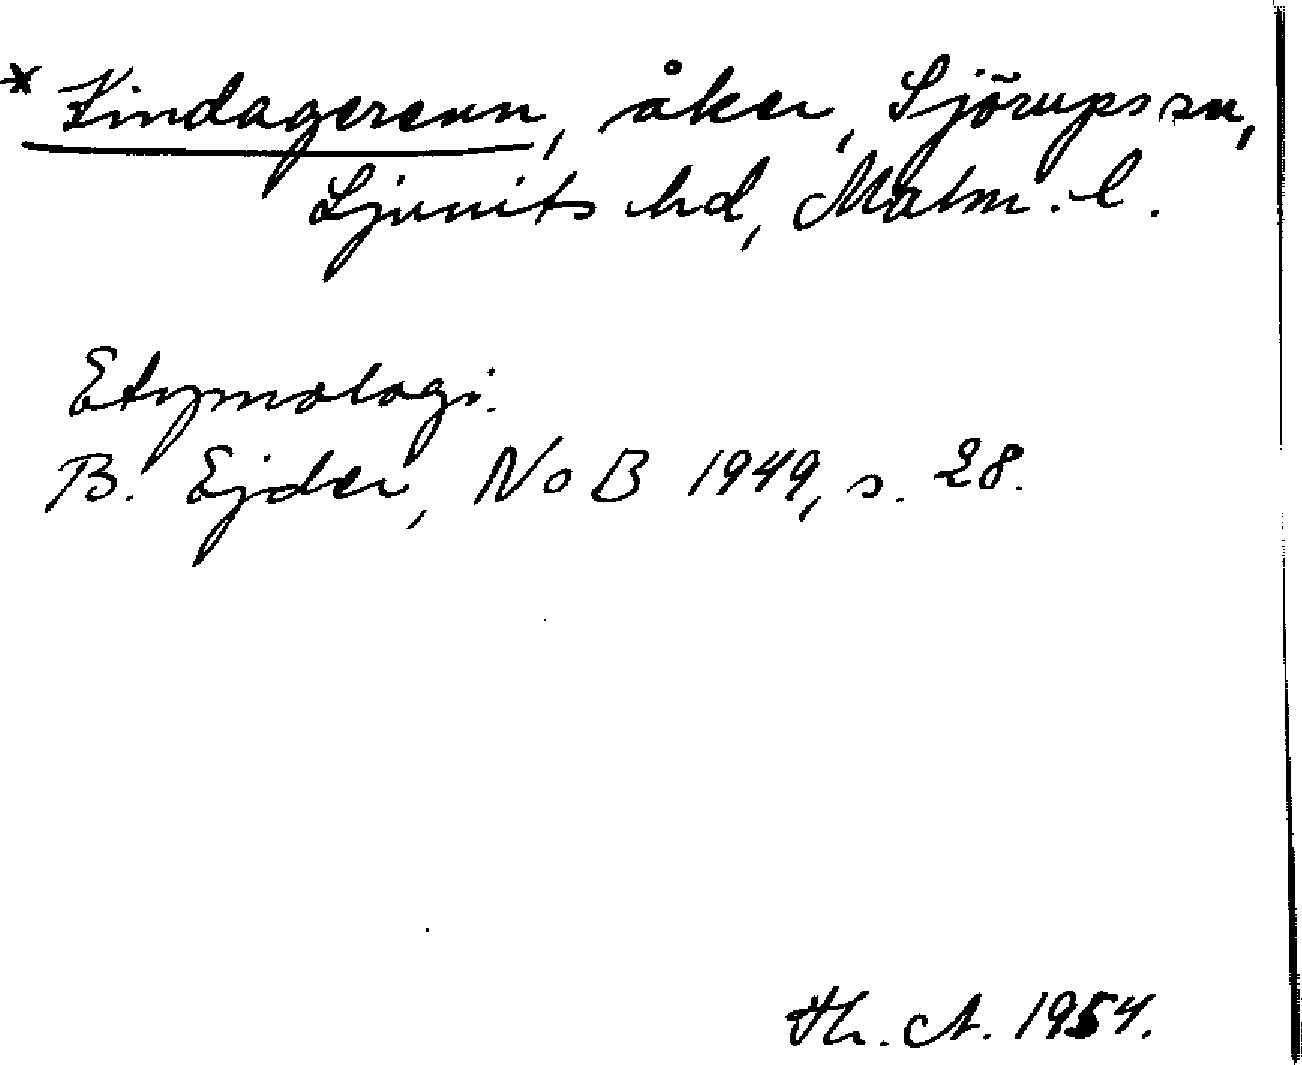 * Kindagerenn, åker, Sjörups sn,
Ljunits hd, Malm. l.
Etymologi.
B. Ejder, NoB 1949, s. 28.
Th. A. 1954.